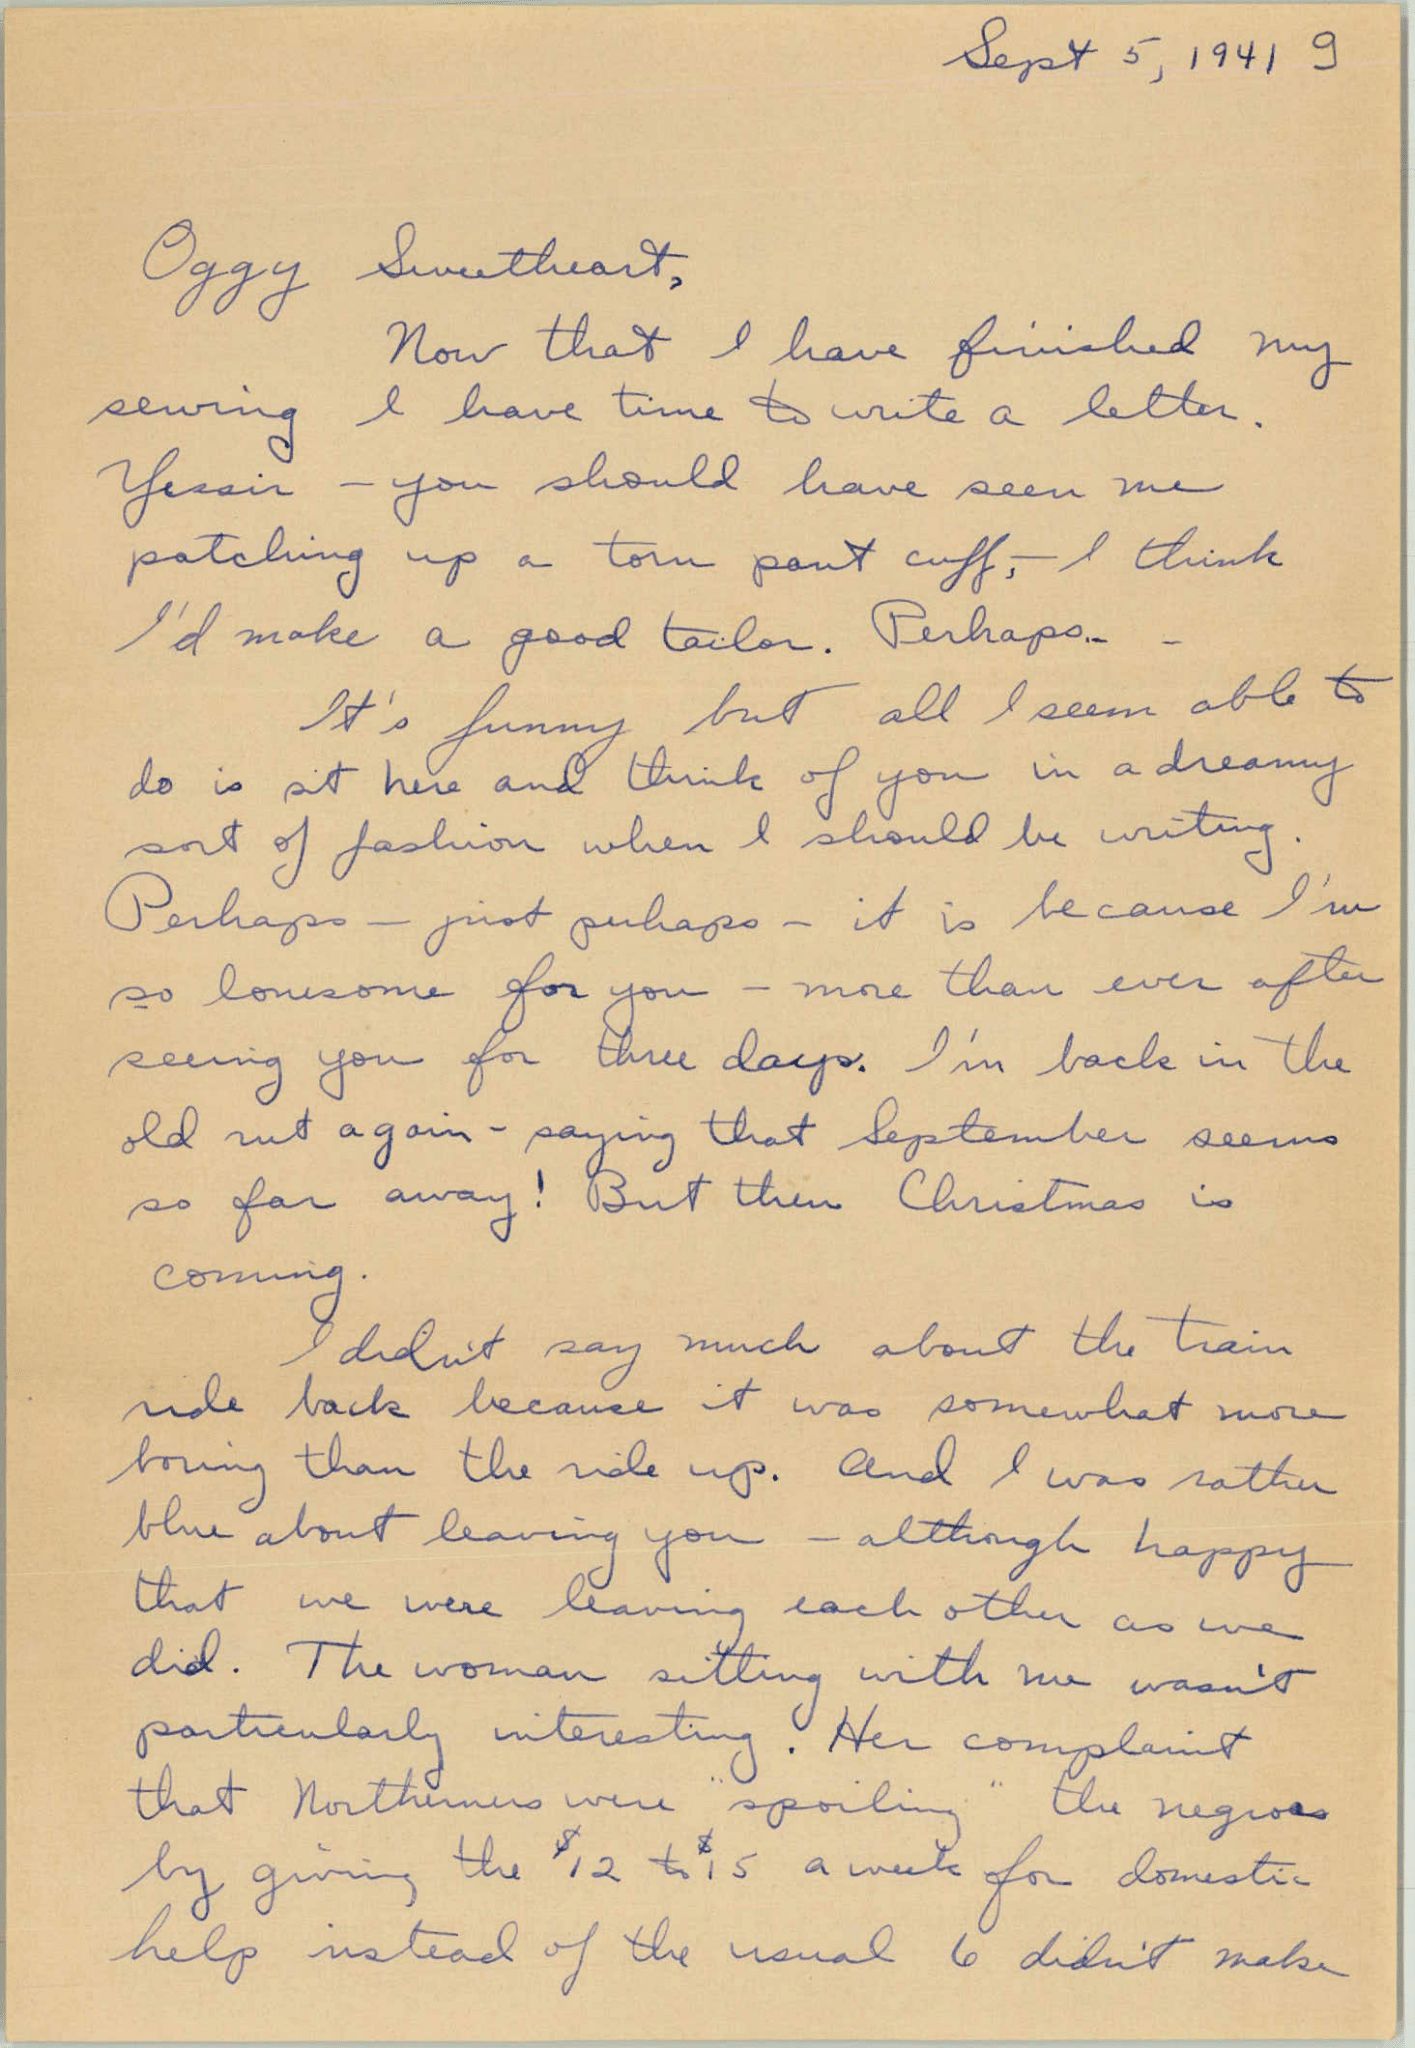 Sept 5, 1941 9
Oggy Sweetheart,
Now that I have finished my
sewing I have time to write a letter.
Yessir - you should have seen me
patching up a torn pant cuff, - I think
I'd make a good tailor. Perhaps - -
It's funny but all I seem able to
do is sit here and think of you in a dreamy
sort of fashion when I should be writing.
Perhaps - just perhaps - it is because I'm
so lonesome for you - more than ever after
seeing you for three days. I'm back in the
old rut again - saying that September seems
so far away! But then Christmas is
coming.
I didn't say much about the train
ride back because it was somewhat more
boring than the ride up. And I was rather
blue about leaving you - although happy
that we were leaving each other as we
did. The woman sitting with me wasn't
particularly interesting. Her complaint
that Northerners were "spoiling" the negroes
by giving the $12 to $15 a week for domestic
help instead of the usual 6 didn't make